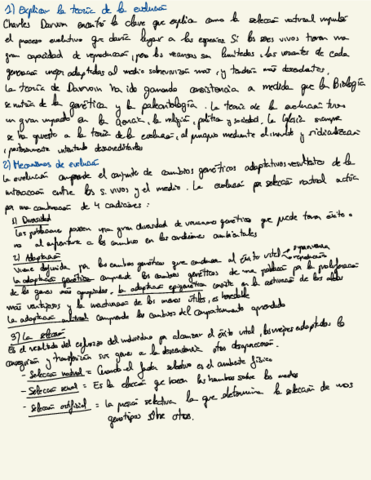 1) Explicar la teoría de la evolución
Charles Darwin encontró la clave que explica como la selección natural impulsa
el proceso evolutivo que daría lugar a las especies. Si los seres vivos tienen una
gran capacidad de reproducción, pero los recursos son limitados, las variantes de cada
generación mejor adaptadas al medio sobrevivirán más y tendrán más descendientes.
La teoría de Darwin ha ido ganando consistencia a medida que la Biología
se nutría de la genética y la paleontología. La teoría de la evolución tuvo
un gran impacto en la ciencia, la religión, política y sociedad. La Iglesia siempre
se ha opuesto a la teoría de la evolución, al principio mediante el insulto y ridiculización
y últimamente intentando desacreditarlos
2) Mecanismos de evolución
La evolución comprende el conjunto de cambios genéticos adaptativos resultantes de la
interacción entre los s. vivos y el medio. La evolución por selección natural actúa
por una combinación de 4 condiciones:
1) Diversidad
Las poblaciones poseen una gran diversidad de variaciones genéticas que puede tener éxito o
no al enfrentarse a los cambios en las condiciones ambientales
2) Adaptación
Viene definida por los cambios genéticos que conducen al éxito vital supervivencia
reproducción
La adaptación genética comprende los cambios genéticos de una población por la proliferación
de los genes más apropiados, la adaptación epigenética consiste en la activación de los alelos
más ventajosos y la inactivación de los menos útiles, es heredable
La adaptación cultural comprende los cambios del comportamiento aprendido
3) La selección
Es el resultado del esfuerzo del individuo por alcanzar el éxito vital, los mejores adaptados lo
conseguirán y transferirán sus genes a la descendencia, otros desaparecerán.
- Selección natural = Cuando el factor selectivo es el ambiente físico
- Selección sexual = Es la elección que hacen las hembras sobre los machos
- Selección artificial = La presión selectiva la que determina la selección de unos
genotipos sobre otros.